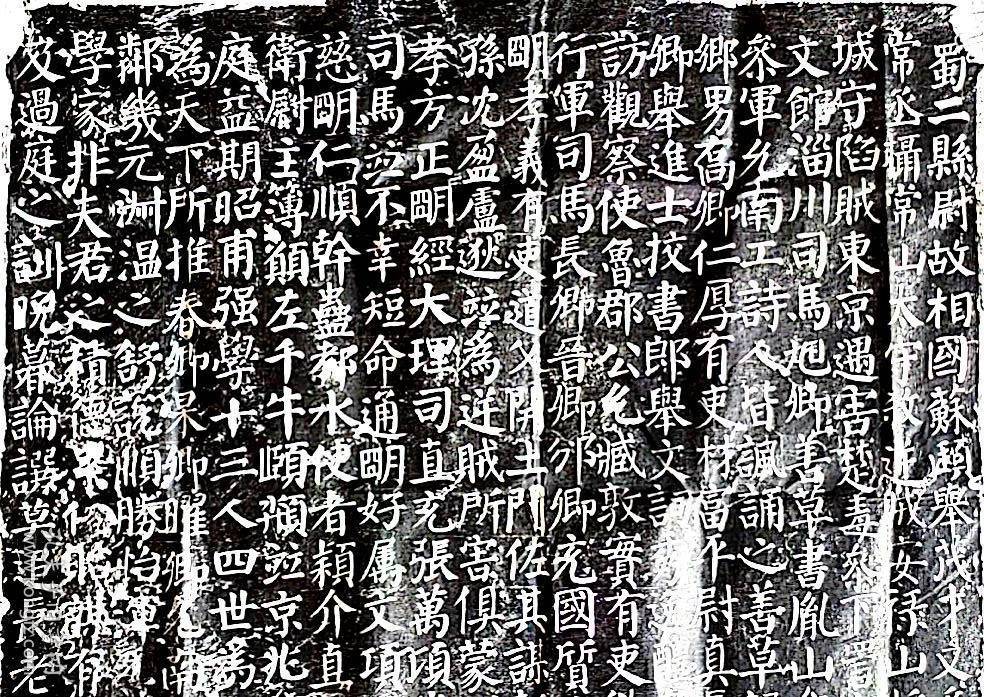 蜀二縣尉故相國蘇頲舉茂才又
常丞攝常山太守殺逆賊安祿山
城守陷賊東京遇害楚毒參下詈
文館淄川司馬旭卿善草書胤山
參軍允南工詩人皆諷誦之善草
鄉男喬卿仁厚有吏材富平尉真
卿舉進士挍書郎舉文詞秀逸
訪觀察使魯郡公允臧敦實有吏
行軍司馬長卿晉卿邠卿充國質
明孝義有吏道父開土門佐其謀
孫沈盈盧逖竝為逆賊所害俱蒙
孝方正明經大理司直充張萬頃
司馬竝不幸短命通明好属文項
慈明仁順幹蠱都水使者穎介直
衛尉主簿願左千牛頤頵竝京兆
庭益期昭甫强學十三人四世為
為天下所推春卿杲卿曜卿允南
鄰幾元淵溫之舒說順勝怡渾允
學家非夫君之積德累仁貽謀有
及過庭之訓晚暮論譔莫追長老